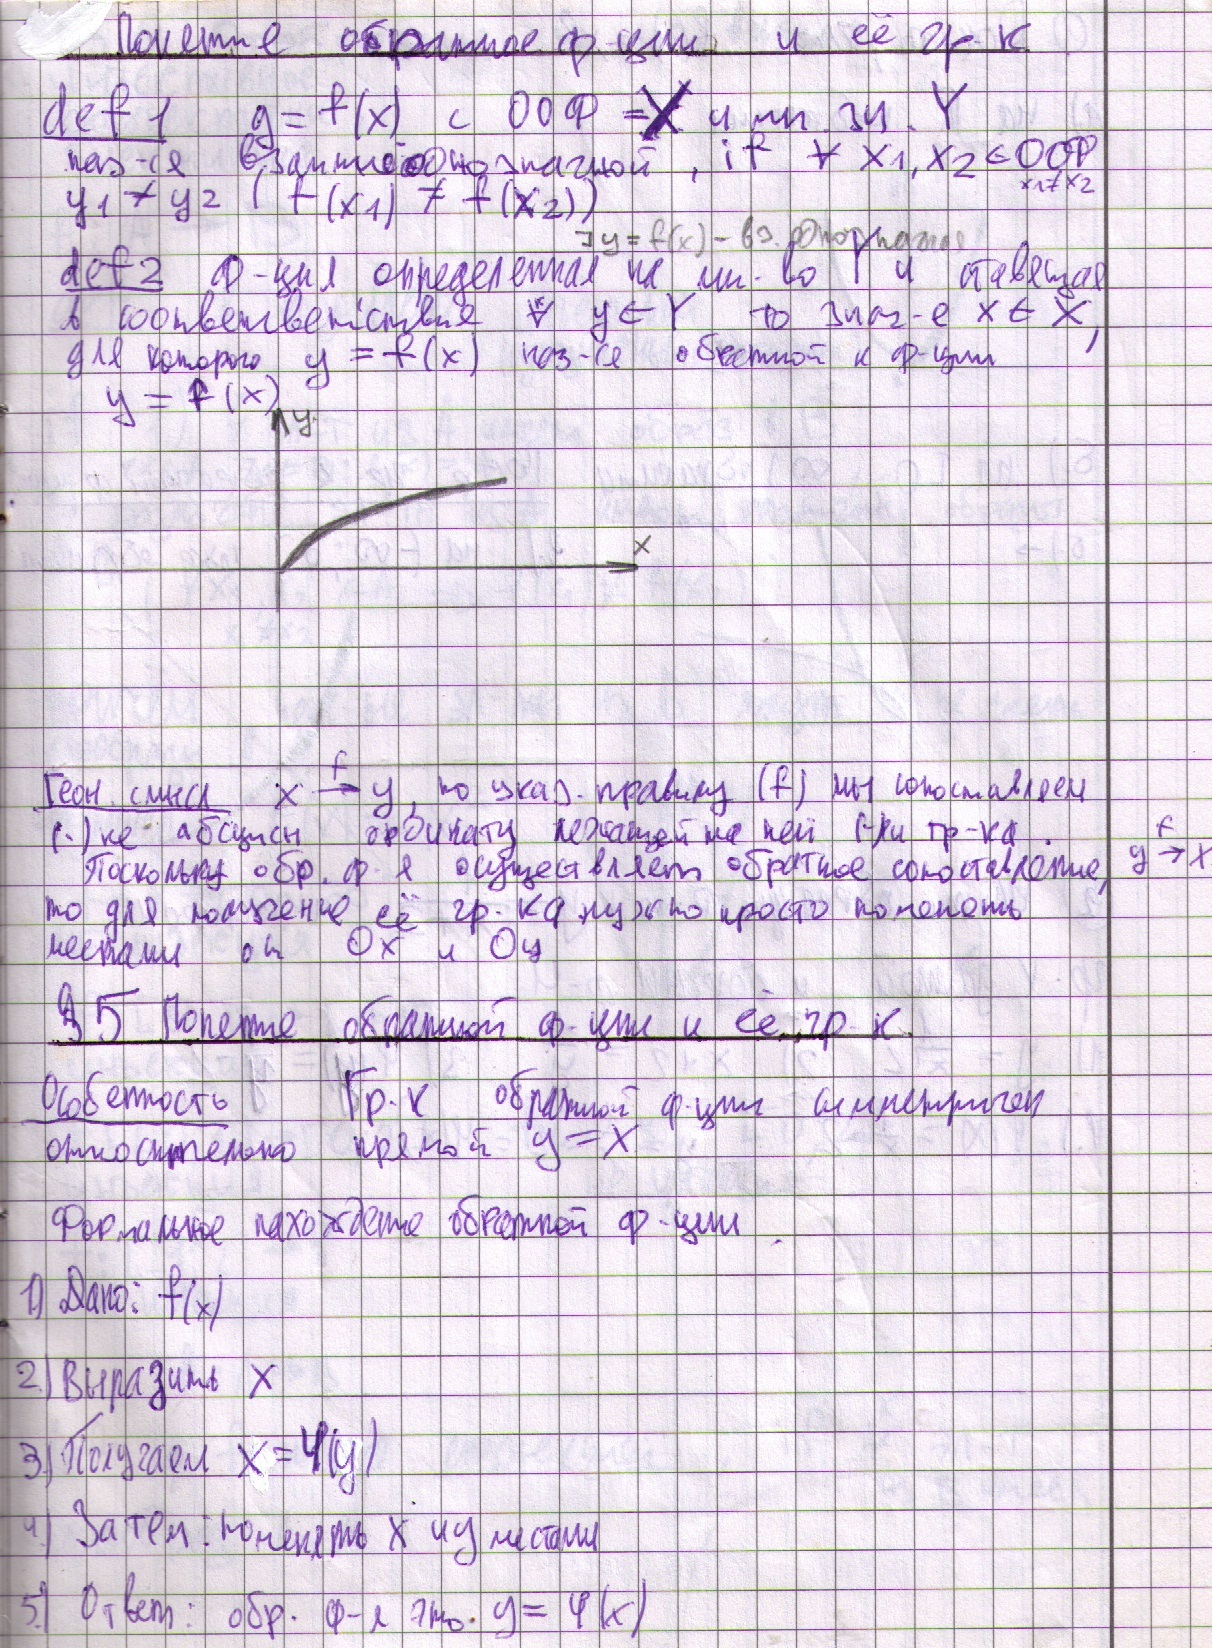 Понятие обратное ф-ции и её гр-к
def 1 y = f(x) с ООФ = X и мн. зн. Y
наз-ся взаимнооднозначной, if ∀ x1, x2 ∈ ООФ
x1 ≠ x2
y1 ≠ y2 ( f(x1) ≠ f(x2))
∃ y = f(x) - вз. однозначная
def 2 Ф-ция определенная на мн-во Y и ставящая
в соответствие ∀ y ∈ Y то знач-е x ∈ X,
для которого y = f(x) наз-ся обратной к ф-ции
y = f(x)
y
x
Геом. смысл x →f y, по указ. правилу (f) мы сопоставляем
(·)ке абсцисы ординату лежащей на ней (·)ки гр-ка.
Поскольку обр. ф-я осуществляет обратное сопоставление, y →f x
то для получение её гр-ка нужно просто поменять
местами оси Ox и Oy
§5 Понятие обратной ф-ции и её гр-к
Особенность Гр-к обратной ф-ции симметричен
относительно прямой y = x
Формальное нахождение обратной ф-ции.
1) Дано: f(x)
2) Выразить x
3) Получаем x = φ(y)
4) Затем: поменять x и y местами
5) Ответ: обр. ф-я это y = φ(x)